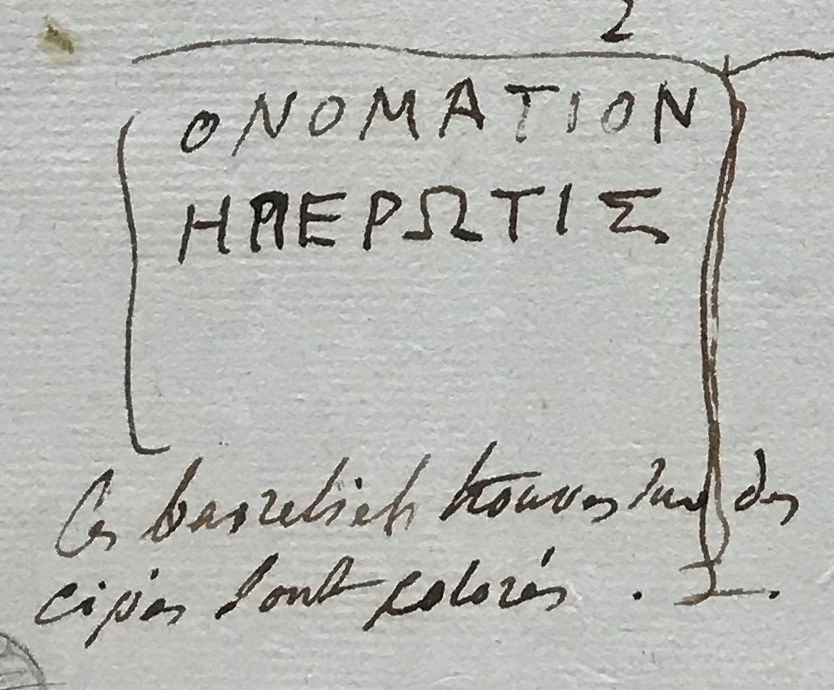 2
ΟΝΟΜΑΤΙΟΝ
ΗΠΕΡΩΤΙΣ
Ces basreliefs trouvés sur des
cipes sont colorés . I .